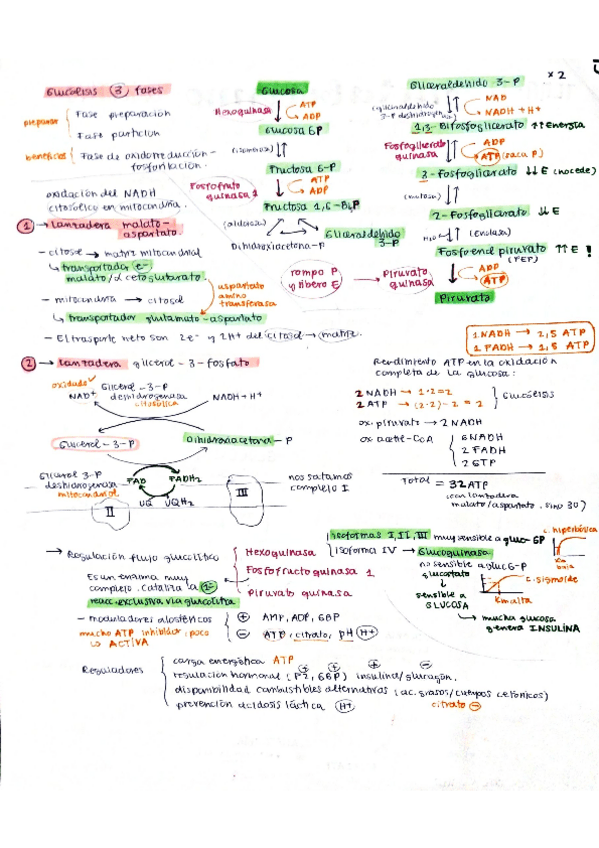 Glucólisis ③ fases
preparac { Fase preparación
Fase partición
beneficios { Fase de oxidorreducción - fosforilación.
oxidación del NADH
citosólico en mitocondria.
① → Lanzadera malato-
aspartato.
- citosol → matriz mitocondrial
↳ transportador e-
malato/α cetoglutarato.
aspartato
amino
transferasa
- mitocondria → citosol
↳ transportador glutamato-aspartato
- El trasporte neto son 2e- y 2H+ del citosol → matriz.
Glucosa
Hexoquinasa
ATP
ADP
Glucosa 6P
(isomerasa)
Fructosa 6-P
Fosfofruto
quinasa 1
ATP
ADP
Fructosa 1,6-BisP
(aldolasa)
Dihidroxiacetona-P
Gliceraldehido
3-P
rompo P
y libero E
→ Piruvato
quinasa
x2
Gliceraldehido-3-P
(gliceraldehido
3-P deshidrogenasa)
NAD
NADH+H+
1,3-Bifosfoglicerato ↑↑Energía
Fosfoglicerato
quinasa
ADP
ATP (saca P)
3-Fosfoglicerato ↓↓E (nocede)
(mutasa)
2-Fosfoglicerato ↓E
H2O
(enolasa)
Fosfoenol piruvato ↑↑E !
(PEP)
ADP
ATP
Piruvato
1 NADH → 2,5 ATP
1 FADH → 1,5 ATP
② → Lanzadera glicerol-3-fosfato
oxidada
Glicerol-3-P
deshidrogenasa
citosólica
NAD+
NADH+H+
Glicerol-3-P
Dihidroxiacetona-P
Glicerol 3-P
deshidrogenasa
mitocondrial
FAD
FADH2
UQ
UQH2
II
III
nos saltamos
complejo I
Rendimiento ATP en la oxidación
completa de la glucosa:
2 NADH → 1·2=2
2 ATP → (2·2)-2 = 2
} Glucólisis
ox. piruvato → 2 NADH
ox acetil-CoA { 6 NADH
2 FADH
2 GTP
Total = 32 ATP
(con lanzadera
malato/aspartato, sino 30)
→ Regulación flujo glucolítico
Hexoquinasa
Fosfofructoquinasa 1
Piruvato quinasa
Isoformas I, II, III muy sensible a gluc-6P
Isoforma IV → Glucoquinasa
no sensible a gluc6-P
↓
sensible a
GLUCOSA
c. hiperbólica
Km
baja
c. sigmoide
Km alta
↳ mucha glucosa
genera INSULINA
Es un enzima muy
complejo. Cataliza la 1ª
reacc. exclusiva vía glucolítica
- moduladores alostéricos
⊕ AMP, ADP, 6BP
⊖ ATP, citrato, pH (H+)
mucho ATP inhibidor, poco
lo ACTIVA
Reguladores
carga energética ATP
regulación hormonal (P2, 6BP) insulina/glucagón.
disponibilidad combustibles alternativos (ac. grasos/cuerpos cetónicos)
citrato ⊖
prevención acidosis láctica (H+)